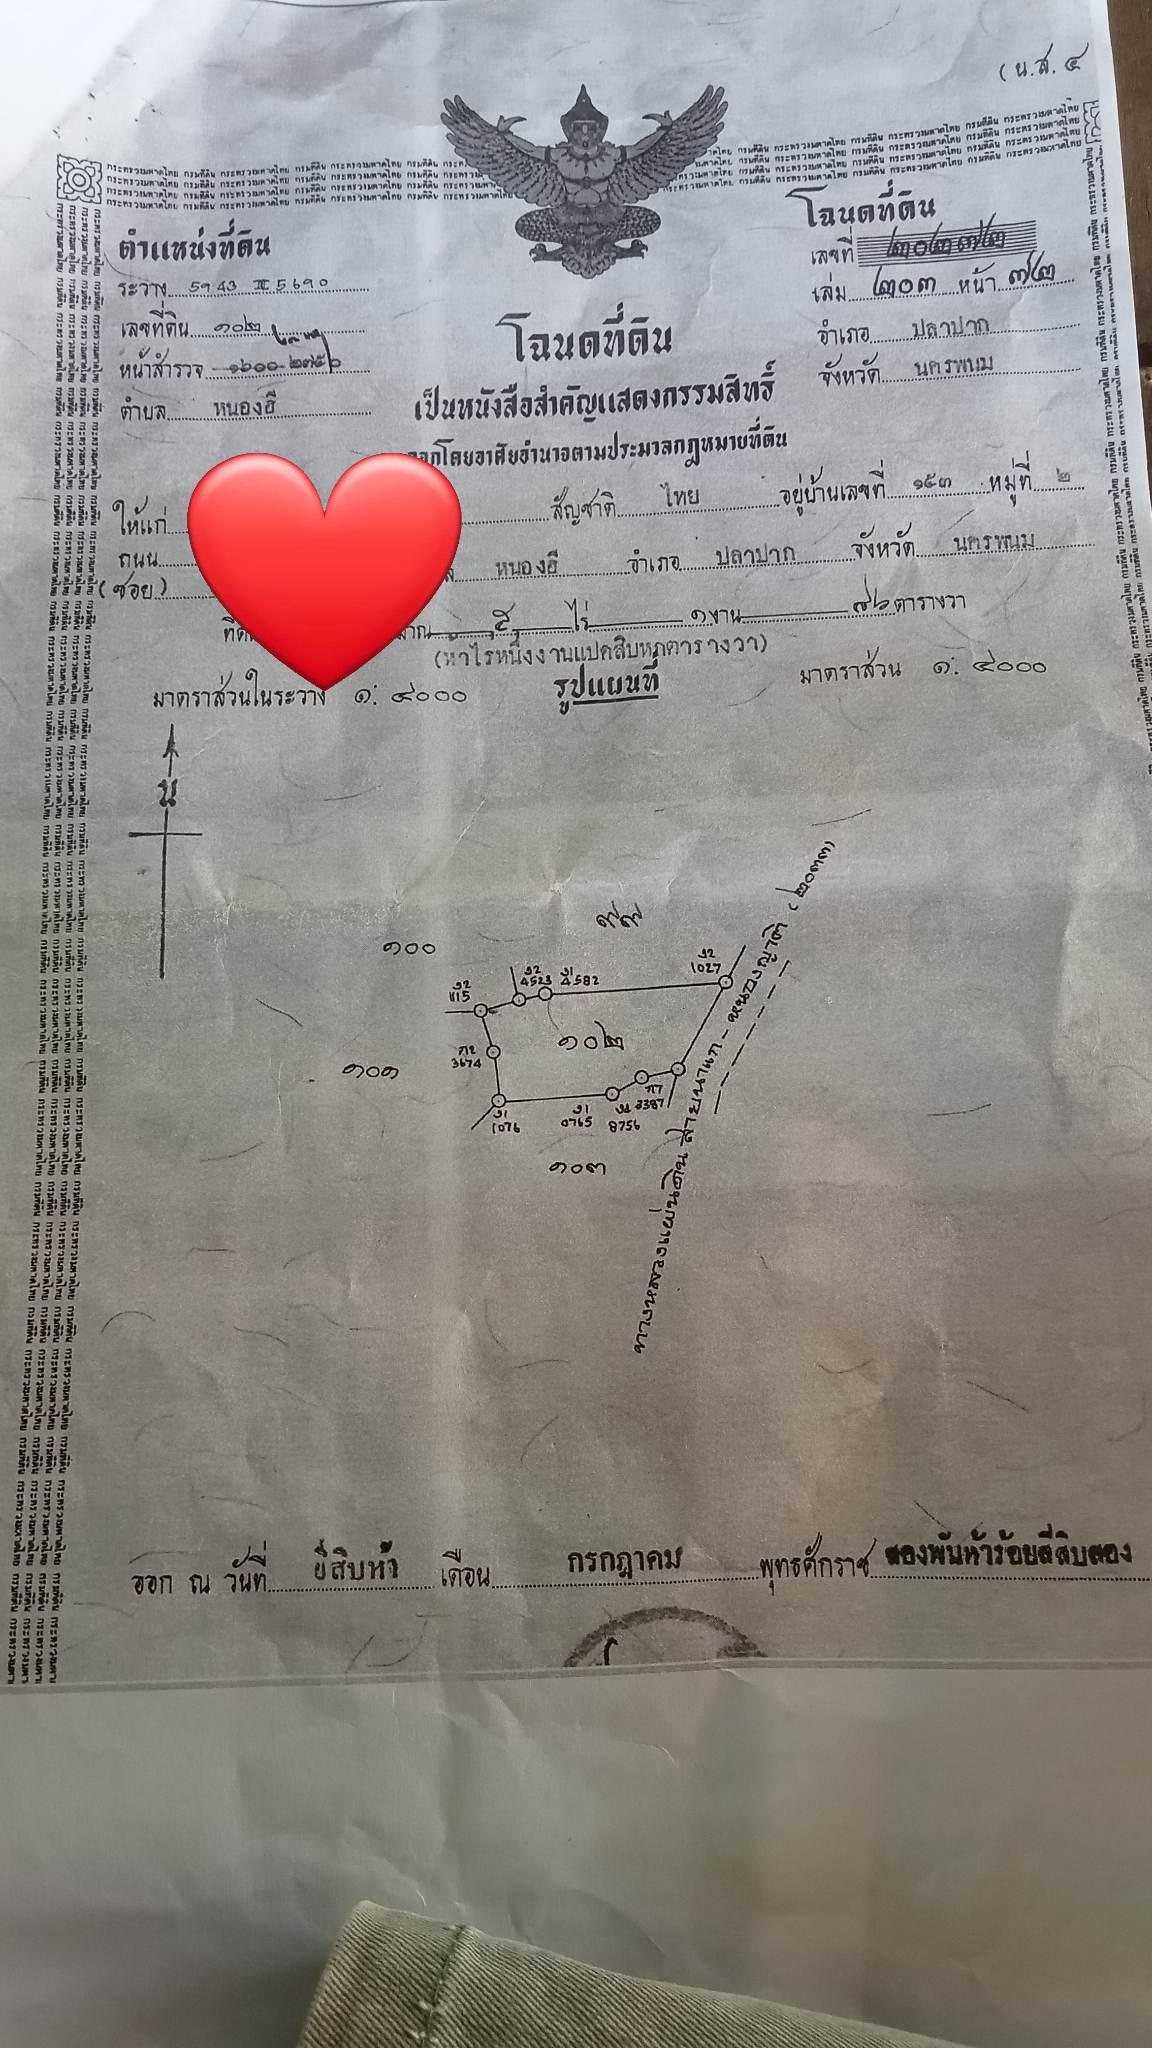 ( น.ส. ๔
โฉนดที่ดิน
เลขที่ ๒๐๒๗๒
เล่ม ๒๐๓ หน้า ๗๒
อำเภอ ปลาปาก
จังหวัด นครพนม
ตำแหน่งที่ดิน
ระวาง 5943 III 5690
เลขที่ดิน ๑๐๒
หน้าสำรวจ
ตำบล หนองฮี
โฉนดที่ดิน
เป็นหนังสือสำคัญแสดงกรรมสิทธิ์
ออกโดยอาศัยอำนาจตามประมวลกฎหมายที่ดิน
ให้แก่ สัญชาติ ไทย อยู่บ้านเลขที่ ๑๕๓ หมู่ที่ ๒
ถนน หนองฮี อำเภอ ปลาปาก จังหวัด นครพนม
(ซอย)
๕ ไร่ ๑ งาน ๘๖ ตารางวา
(ห้าไร่หนึ่งงานแปดสิบหกตารางวา)
มาตราส่วนในระวาง ๑: ๔๐๐๐ รูปแผนที่ มาตราส่วน ๑: ๔๐๐๐
น
๗๗
๑๐๐
1115 4523 4582 1027
๑๐๒
๑๐๑
3674
1076 0765 8756 3387
๑๐๓
ทางหลวงแผ่นดิน สายนาแก - หนองญาติ (๒๐๓๓)
ออก ณ วันที่ ยี่สิบห้า เดือน กรกฎาคม พุทธศักราช สองพันห้าร้อยสี่สิบสอง